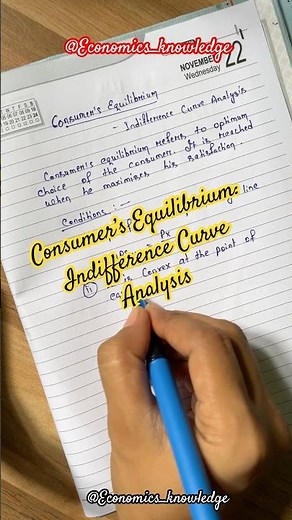 @Economics_knowledge
NOVEMBER
Wednesday
22
Consumer's Equilibrium
- Indifference Curve Analysis
Consumer's equilibrium refers to optimum
choice of the consumer. It is reached
when he maximises his satisfaction.
Conditions :-
line
Px
Consumer's Equilibrium:
Indifference Curve
Analysis
ii
is Convex at the point of
@Economics_knowledge